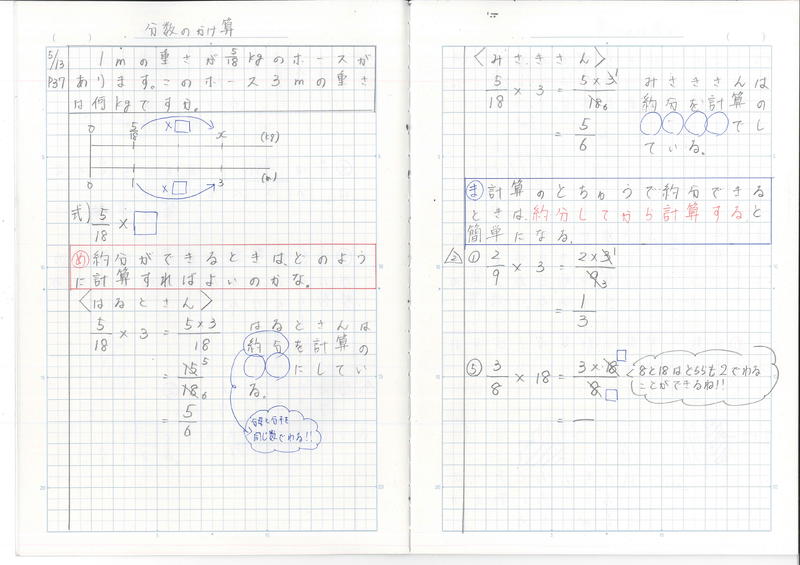 分数のかけ算
5/13
P37
1mの重さが5/18kgのホースが
あります。このホース3mの重さ
は何kgですか。
0 5/18 ×□ x (kg)
0 1 ×□ 3 (m)
式) 5/18 × □
め 約分ができるときは、どのよう
に計算すればよいのかな。
〈はるとさん〉
5/18 × 3 = 5×3/18
= 15 5/18 6
= 5/6
はるとさんは
約分を計算の
○○にしてい
る。
分母と分子を
同じ数でわる!!
〈みさきさん〉
5/18 × 3 = 5×3 1/18 6
= 5/6
みさきさんは
約分を計算の
○○○○でし
ている。
ま 計算のとちゅうで約分できる
ときは、約分してから計算すると
簡単になる。
2 ① 2/9 × 3 = 2×3 1/9 3
= 1/3
⑤ 3/8 × 18 = 3×18 □/8 □
= —
8と18はどちらも2でわる
ことができるね!!